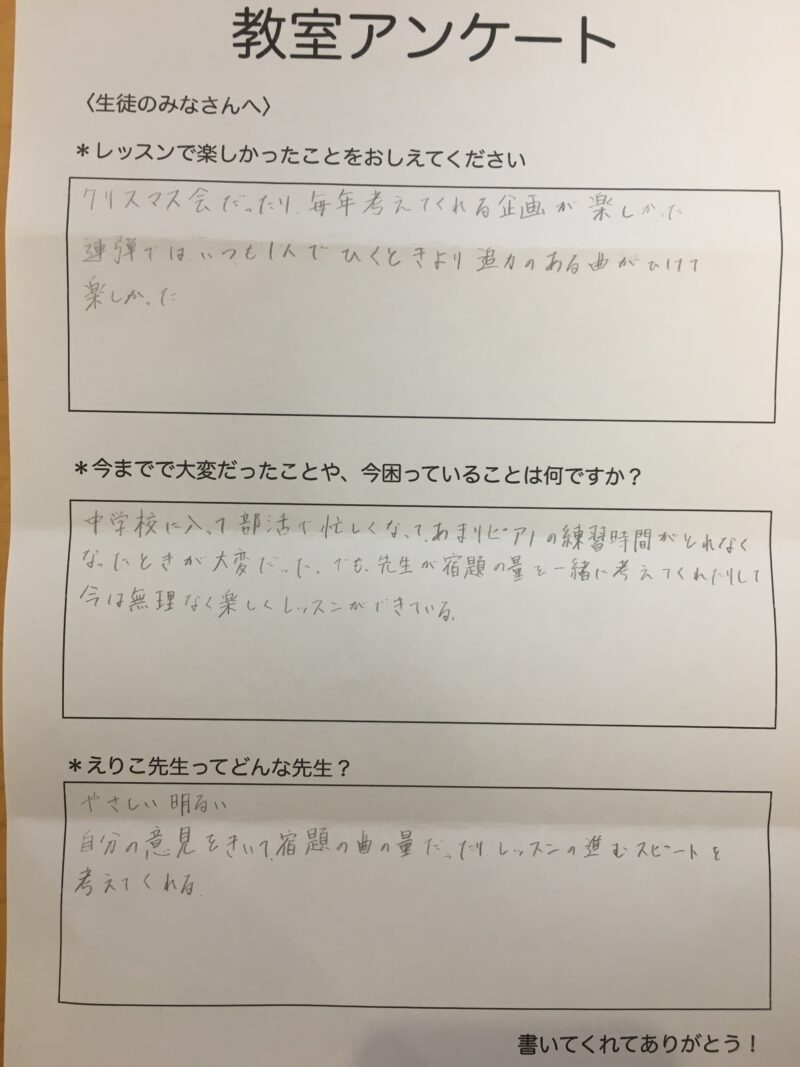 教室アンケート
〈生徒のみなさんへ〉
＊レッスンで楽しかったことをおしえてください
クリスマス会だったり、毎年考えてくれる企画が楽しかった
連弾では、いつも1人でひくときより迫力のある曲がひけて
楽しかった
＊今までで大変だったことや、今困っていることは何ですか？
中学校に入って部活で忙しくなって、あまりピアノの練習時間がとれなく
なったときが大変だった。でも、先生が宿題の量を一緒に考えてくれたりして
今は無理なく楽しくレッスンができている。
＊えりこ先生ってどんな先生？
やさしい、明るい
自分の意見をきいて、宿題の曲の量だったり、レッスンの進むスピードを
考えてくれる。
書いてくれてありがとう！